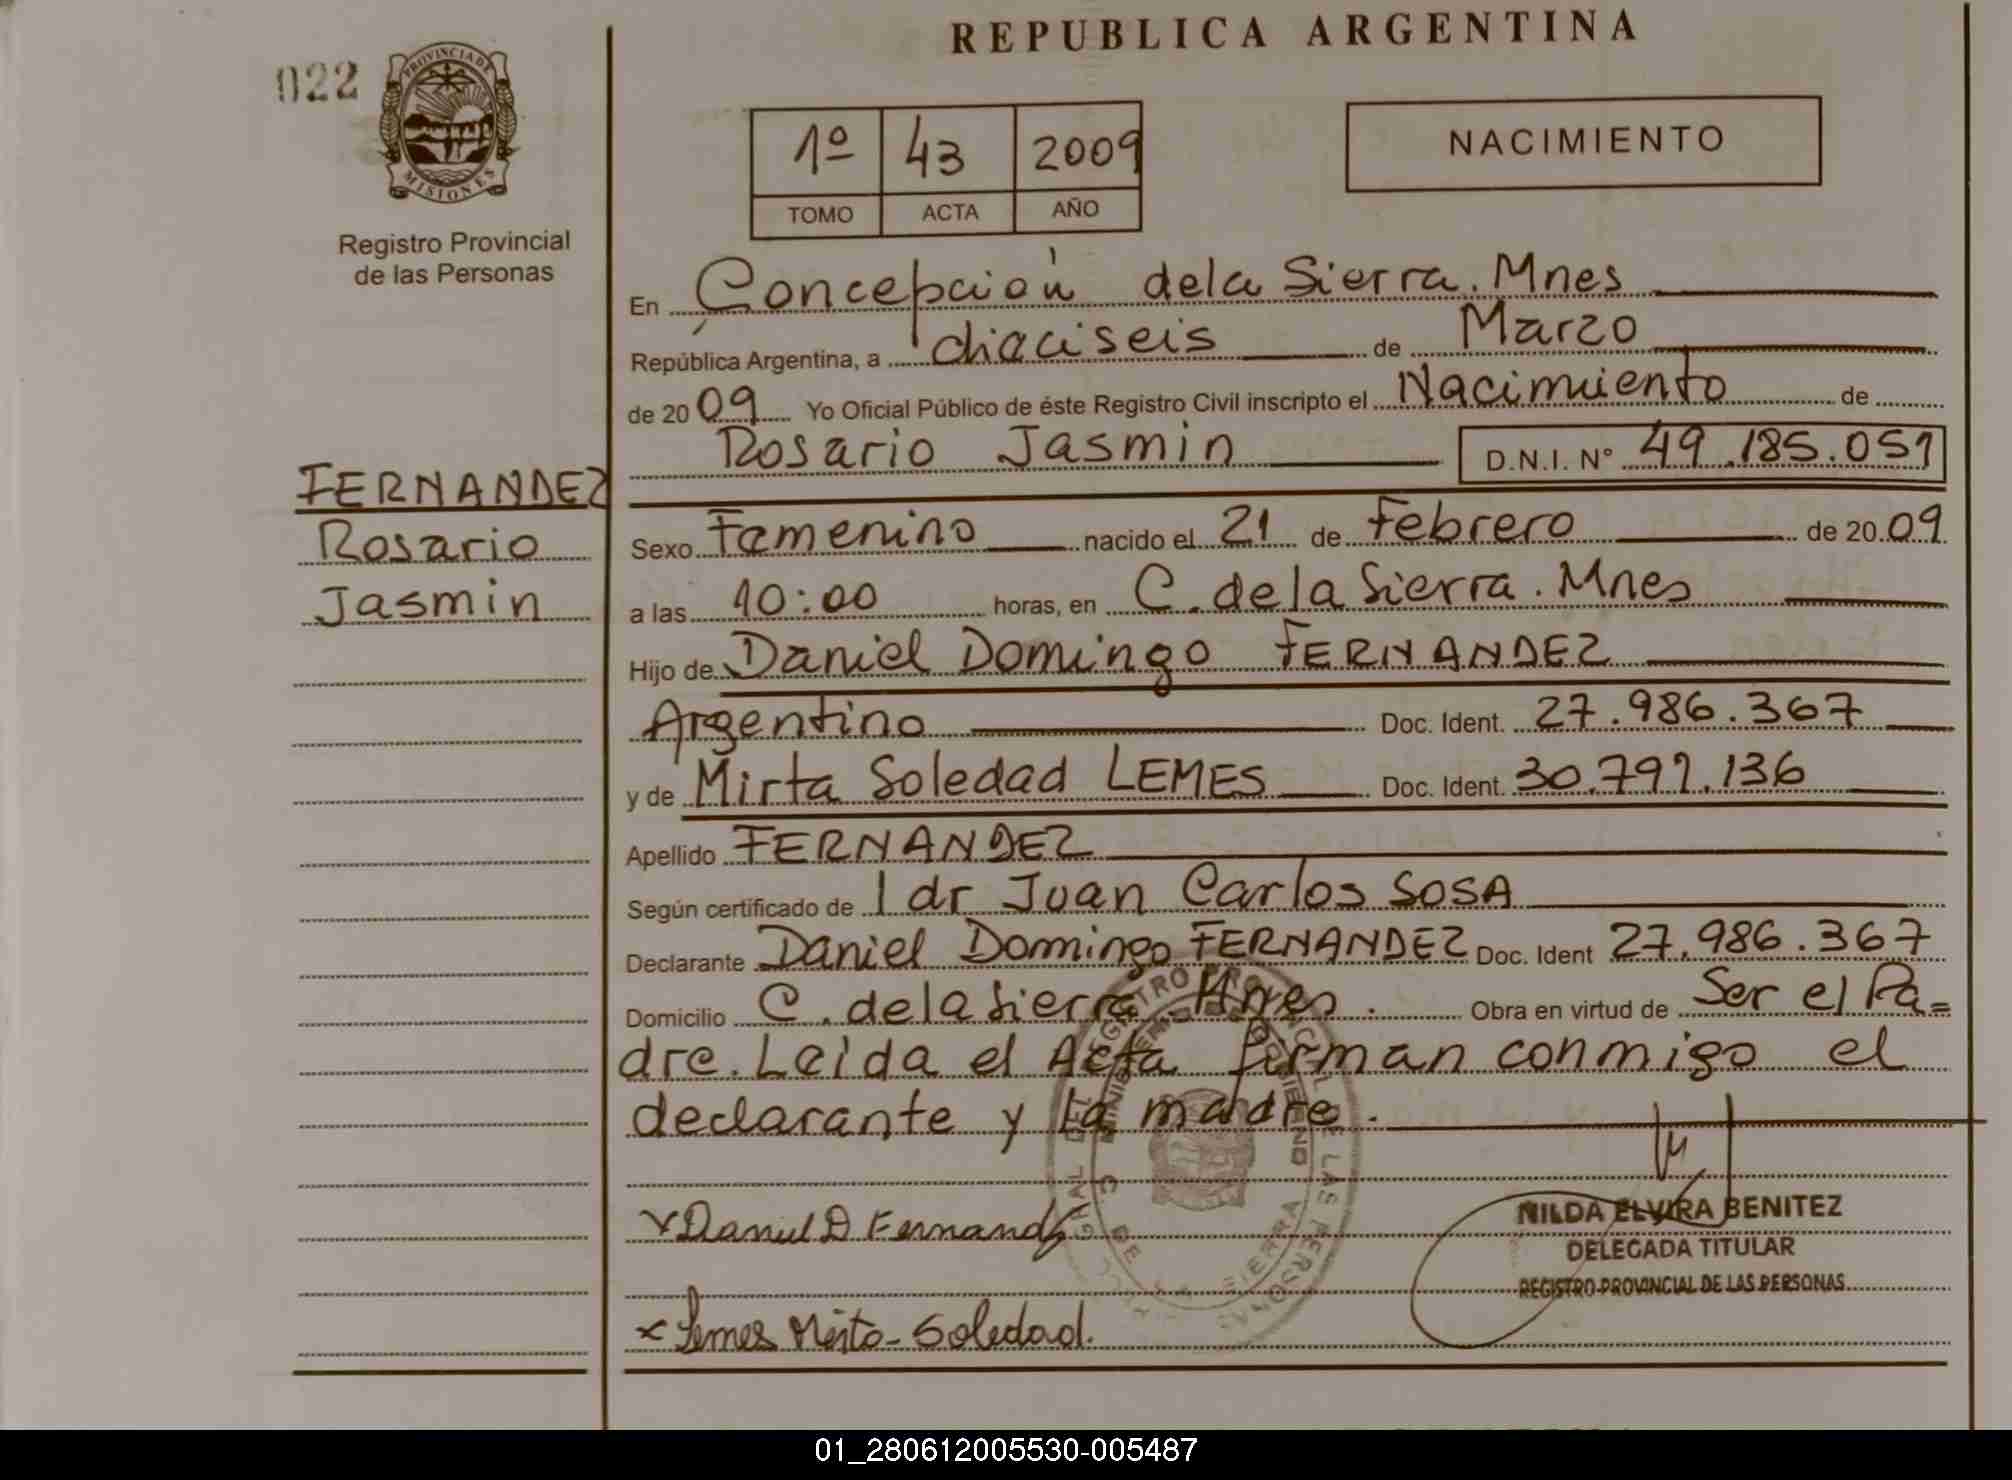 REPUBLICA ARGENTINA
022
PROVINCIA DE
MISIONES
Registro Provincial
de las Personas
1º 43 2009
TOMO ACTA AÑO
NACIMIENTO
En Concepción dela Sierra. Mnes
República Argentina, a diaciseis de Marzo
de 2009 Yo Oficial Público de éste Registro Civil inscripto el Nacimiento de
Rosario Jasmin D.N.I. Nº 49.185.051
FERNANDEZ
Rosario
Jasmin
Sexo Femenino nacido el 21 de Febrero de 2009
a las 10:00 horas, en C. de la Sierra. Mnes
Hijo de Daniel Domingo FERNANDEZ
Argentino Doc. Ident. 27.986.367
y de Mirta Soledad LEMES Doc. Ident. 30.791.136
Apellido FERNANDEZ
Según certificado de 1 dr Juan Carlos SOSA
Declarante Daniel Domingo FERNANDEZ Doc. Ident 27.986.367
Domicilio C. de la Sierra Mnes. Obra en virtud de Ser el Pa=
dre. Leida el Acta firman conmigo el
declarante y la madre.
x Daniel D Fernand
x Lemes Mirta-Soledad.
NILDA ELVIRA BENITEZ
DELEGADA TITULAR
REGISTRO PROVINCIAL DE LAS PERSONAS
01_280612005530-005487